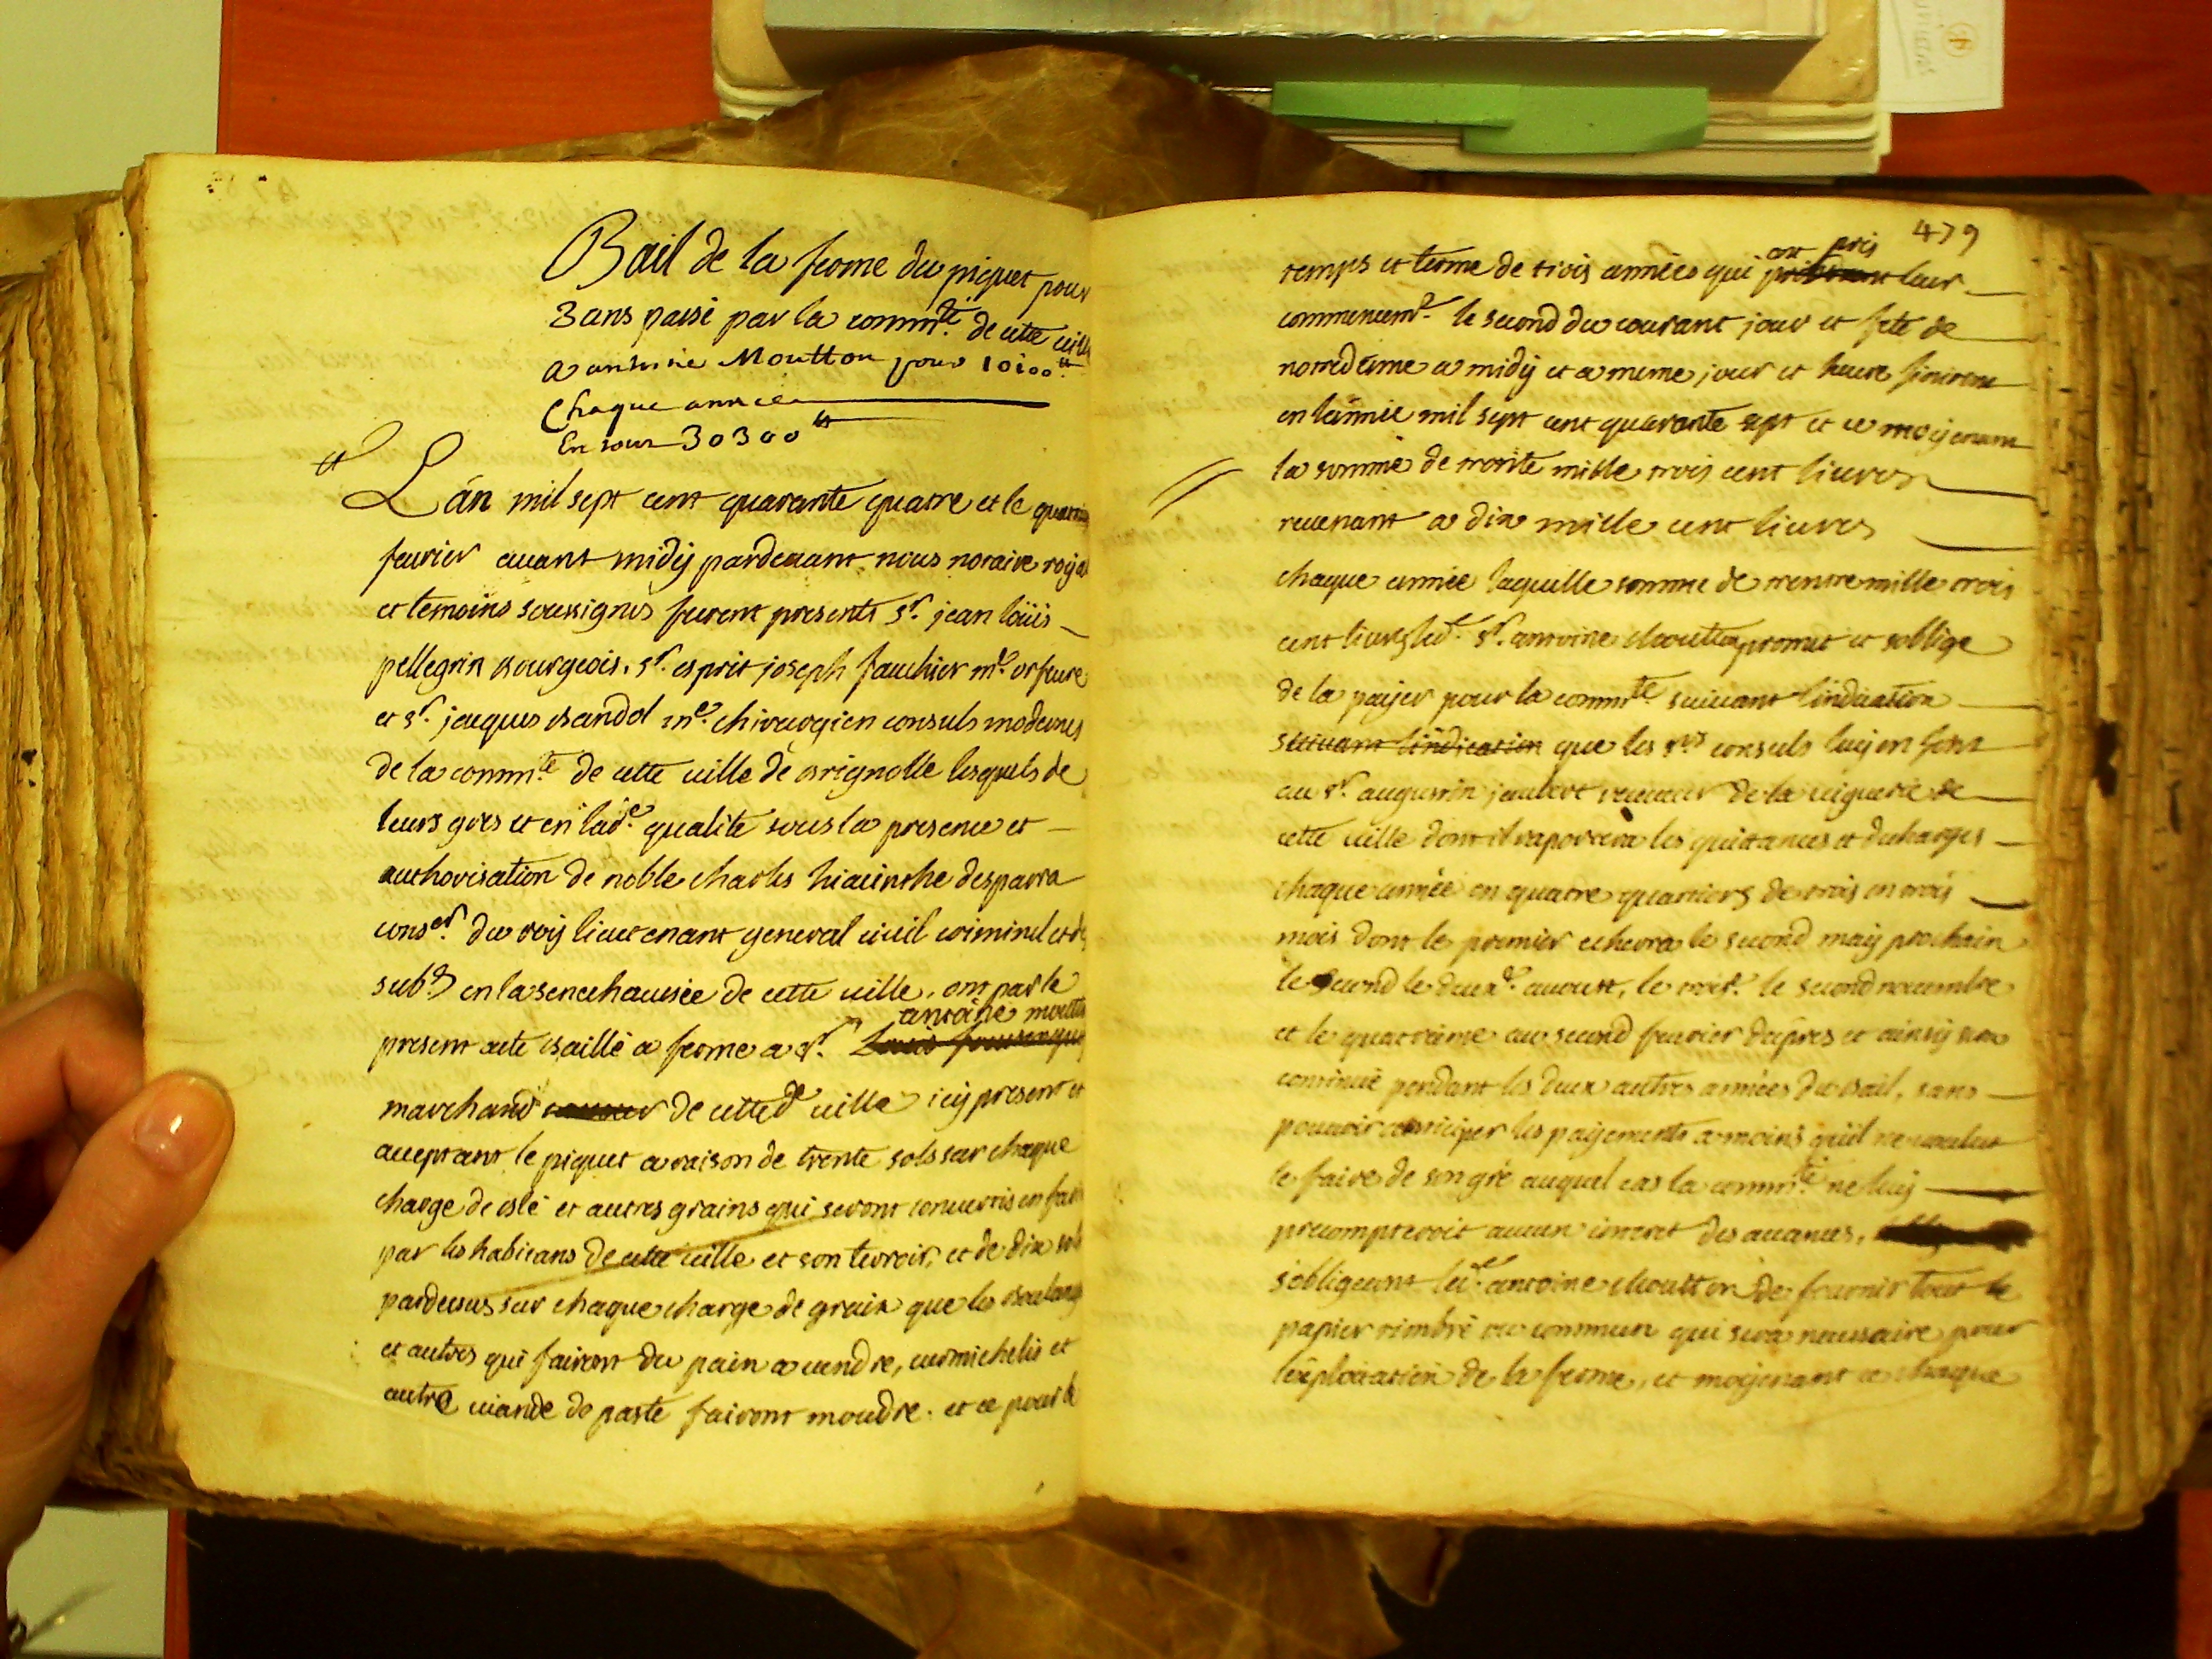 Bail de la ferme du piquet pour
3 ans passé par la comm.té de cette ville
a antoine Moutton pour 10100tt
Chaque année
En tout 30300tt
L'an mil sept cent quarante quatre et le quatrie
feurier auant midy pardeuant nous notaire royal
et temoins soussignes furent presents sr. jean loüis
pellegrin bourgeois, sr. esprit joseph fauchier me. orfeure
et sr. jacques bandol me. chirurgien consuls modernes
de la comm.té de cette uille de brignolle lesquels de
leurs gres et en lad.e qualité sous la presence et
authorisation de noble charles hiacinthe desparra
conser. du roy lieutenant general ciuil criminel et de
sub.on en la senechaussée de cette uille, ont par le
antoine moutton
present acte baillé a ferme a sr. Louis
marchand de cetted.e uille icy present et
acceptant le piquet a raison de trente sols sur chaque
charge de blé et autres grains qui seront conuertis en fari
par les habitans de cette uille et son terroir, et de dix sols
pardessus sur chaque charge de grain que les boulang
et autres qui fairont du pain a uendre, uermichelis et
autre uiande de paste fairont moudre. et ce pour le
479
ont pris
temps et terme de trois années qui prendront leur
commencemt. le second du courant jour et fete de
notredame a midy et a meme jour et heure finiront
en l'année mil sept cent quarante sept et ce moyenant
la somme de trente mille trois cent liures
reuenant a dix mille cent liures
chaque année laquelle somme de trente mille trois
cent liures led.t sr. antoine Moutton promet et soblige
de la payer pour la comm.té suiuant l'indication
suiuant l'indication que les srs consuls luy en font
au sr. augustin jaubert receueur de la uiguerie de
cette uille dont il raportera les quittances et decharges
chaque année en quatre quartiers de trois en trois
mois dont le premier echerra le second may prochain
le second le deuxe. aoust, le troise. le second nouembre
et le quatrieme au second feurier d'apres et ainsy sera
continué pendant les deux autres années du bail, sans
pouuoir anticiper les payements a moins qu'il ne uoulut
le faire de son gré auquel cas la comm.té ne luy
precompteroit aucun interet des auances,
s'obligeant led.t antoine Moutton de fournir tout le
papier timbré ou commun qui sera necessaire pour
l'exploitation de la ferme, et moyenant ce chaque